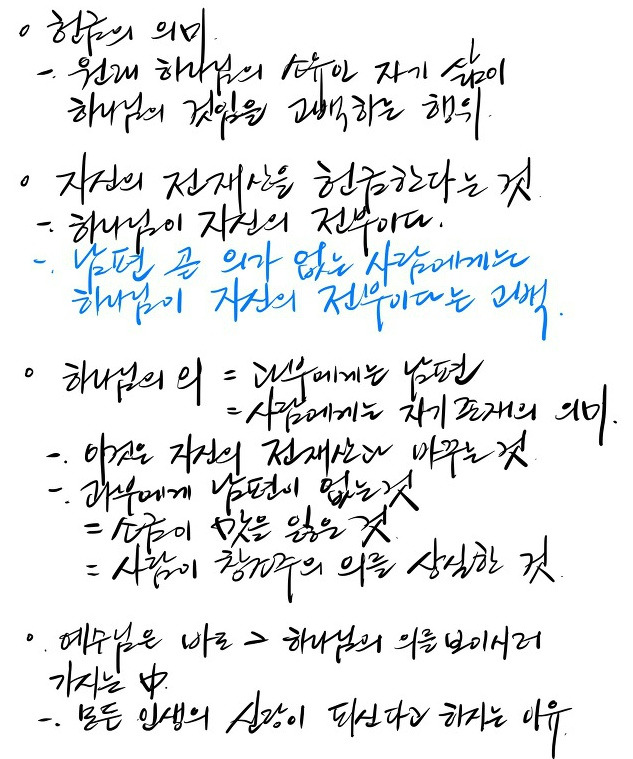 ◦ 헌금의 의미.
-. 원래 하나님의 소유인 자기 삶이
하나님의 것임을 고백하는 행위.
◦ 자신의 전재산을 헌금한다는 것
-. 하나님이 자신의 전부이다.
-. 남편 곧 의가 없는 사람에게는
하나님이 자신의 전부이다는 고백.
◦ 하나님의 의 = 과부에게는 남편
= 사람에게는 자기 존재의 의미.
-. 이것은 자신의 전재산과 바꾸는 것.
-. 과부에게 남편이 없는 것
= 소금이 맛을 잃은 것.
= 사람이 창조주의 의를 상실한 것.
◦. 예수님은 바로 그 하나님의 의를 보이시러
가시는 中.
-. 모든 인생의 신랑이 되신다고 하시는 이유.